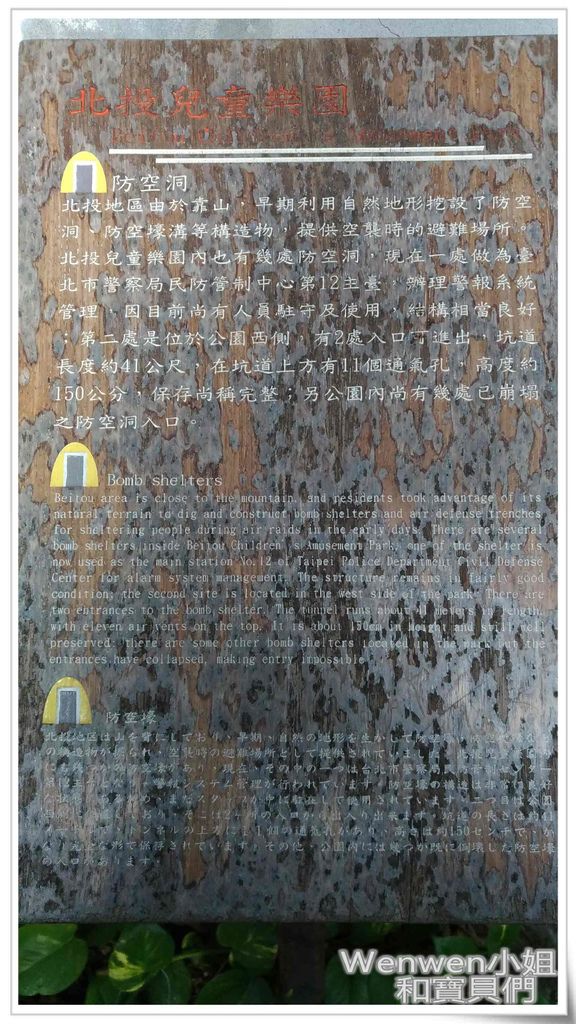 北投兒童樂園
防空洞
北投地區由於靠山，早期利用自然地形挖設了防空
洞、防空壕溝等構造物，提供空襲時的避難場所。
北投兒童樂園內也有幾處防空洞，現在一處做為臺
北市警察局民防管制中心第12主臺，辦理警報系統
管理，因目前尚有人員駐守及使用，結構相當良好
；第二處是位於公園西側，有2處入口可進出，坑道
長度約41公尺，在坑道上方有11個通氣孔，高度約
150公分，保存尚稱完整；另公園內尚有幾處已崩塌
之防空洞入口。
Bomb shelters
Beitou area is close to the mountain, and residents took advantage of its
natural terrain to dig and construct bomb shelters and air defense trenches
for sheltering people during air raids in the early days. There are several
bomb shelters inside Beitou Children's Amusement Park, one of the shelter is
now used as the main station No.12 of Taipei Police Department Civil Defense
Center for alarm system management. The structure remains in fairly good
condition; the second site is located in the west side of the park. There are
two entrances to the bomb shelter. The tunnel runs about meters in length,
with eleven air vents on the top. It is about 150cm in height and still well
preserved. there are some other bomb shelters located in the park but the
entrances have collapsed, making entry impossible.
防空壕
北投地区は山を背にしており、早期、自然の地形を生かして防空
の構造物が掘られ、空襲時の避難場所として提供されています。
現在、その中の一つは台北市警察局
システム管理が行われています。防空壕の構造は非常に良好
またスタッフが中に駐在して使用されています。
そこは2ヶ所の入口から出入り出来ます。坑道の長さは約41
トンネルの上方に11個の通気孔があり、高さは約150センチで、か
保存されています。その他、公園内には幾つか既に倒壊した防空壕
の入口があります。
Wenwen小姐
和寶貝們